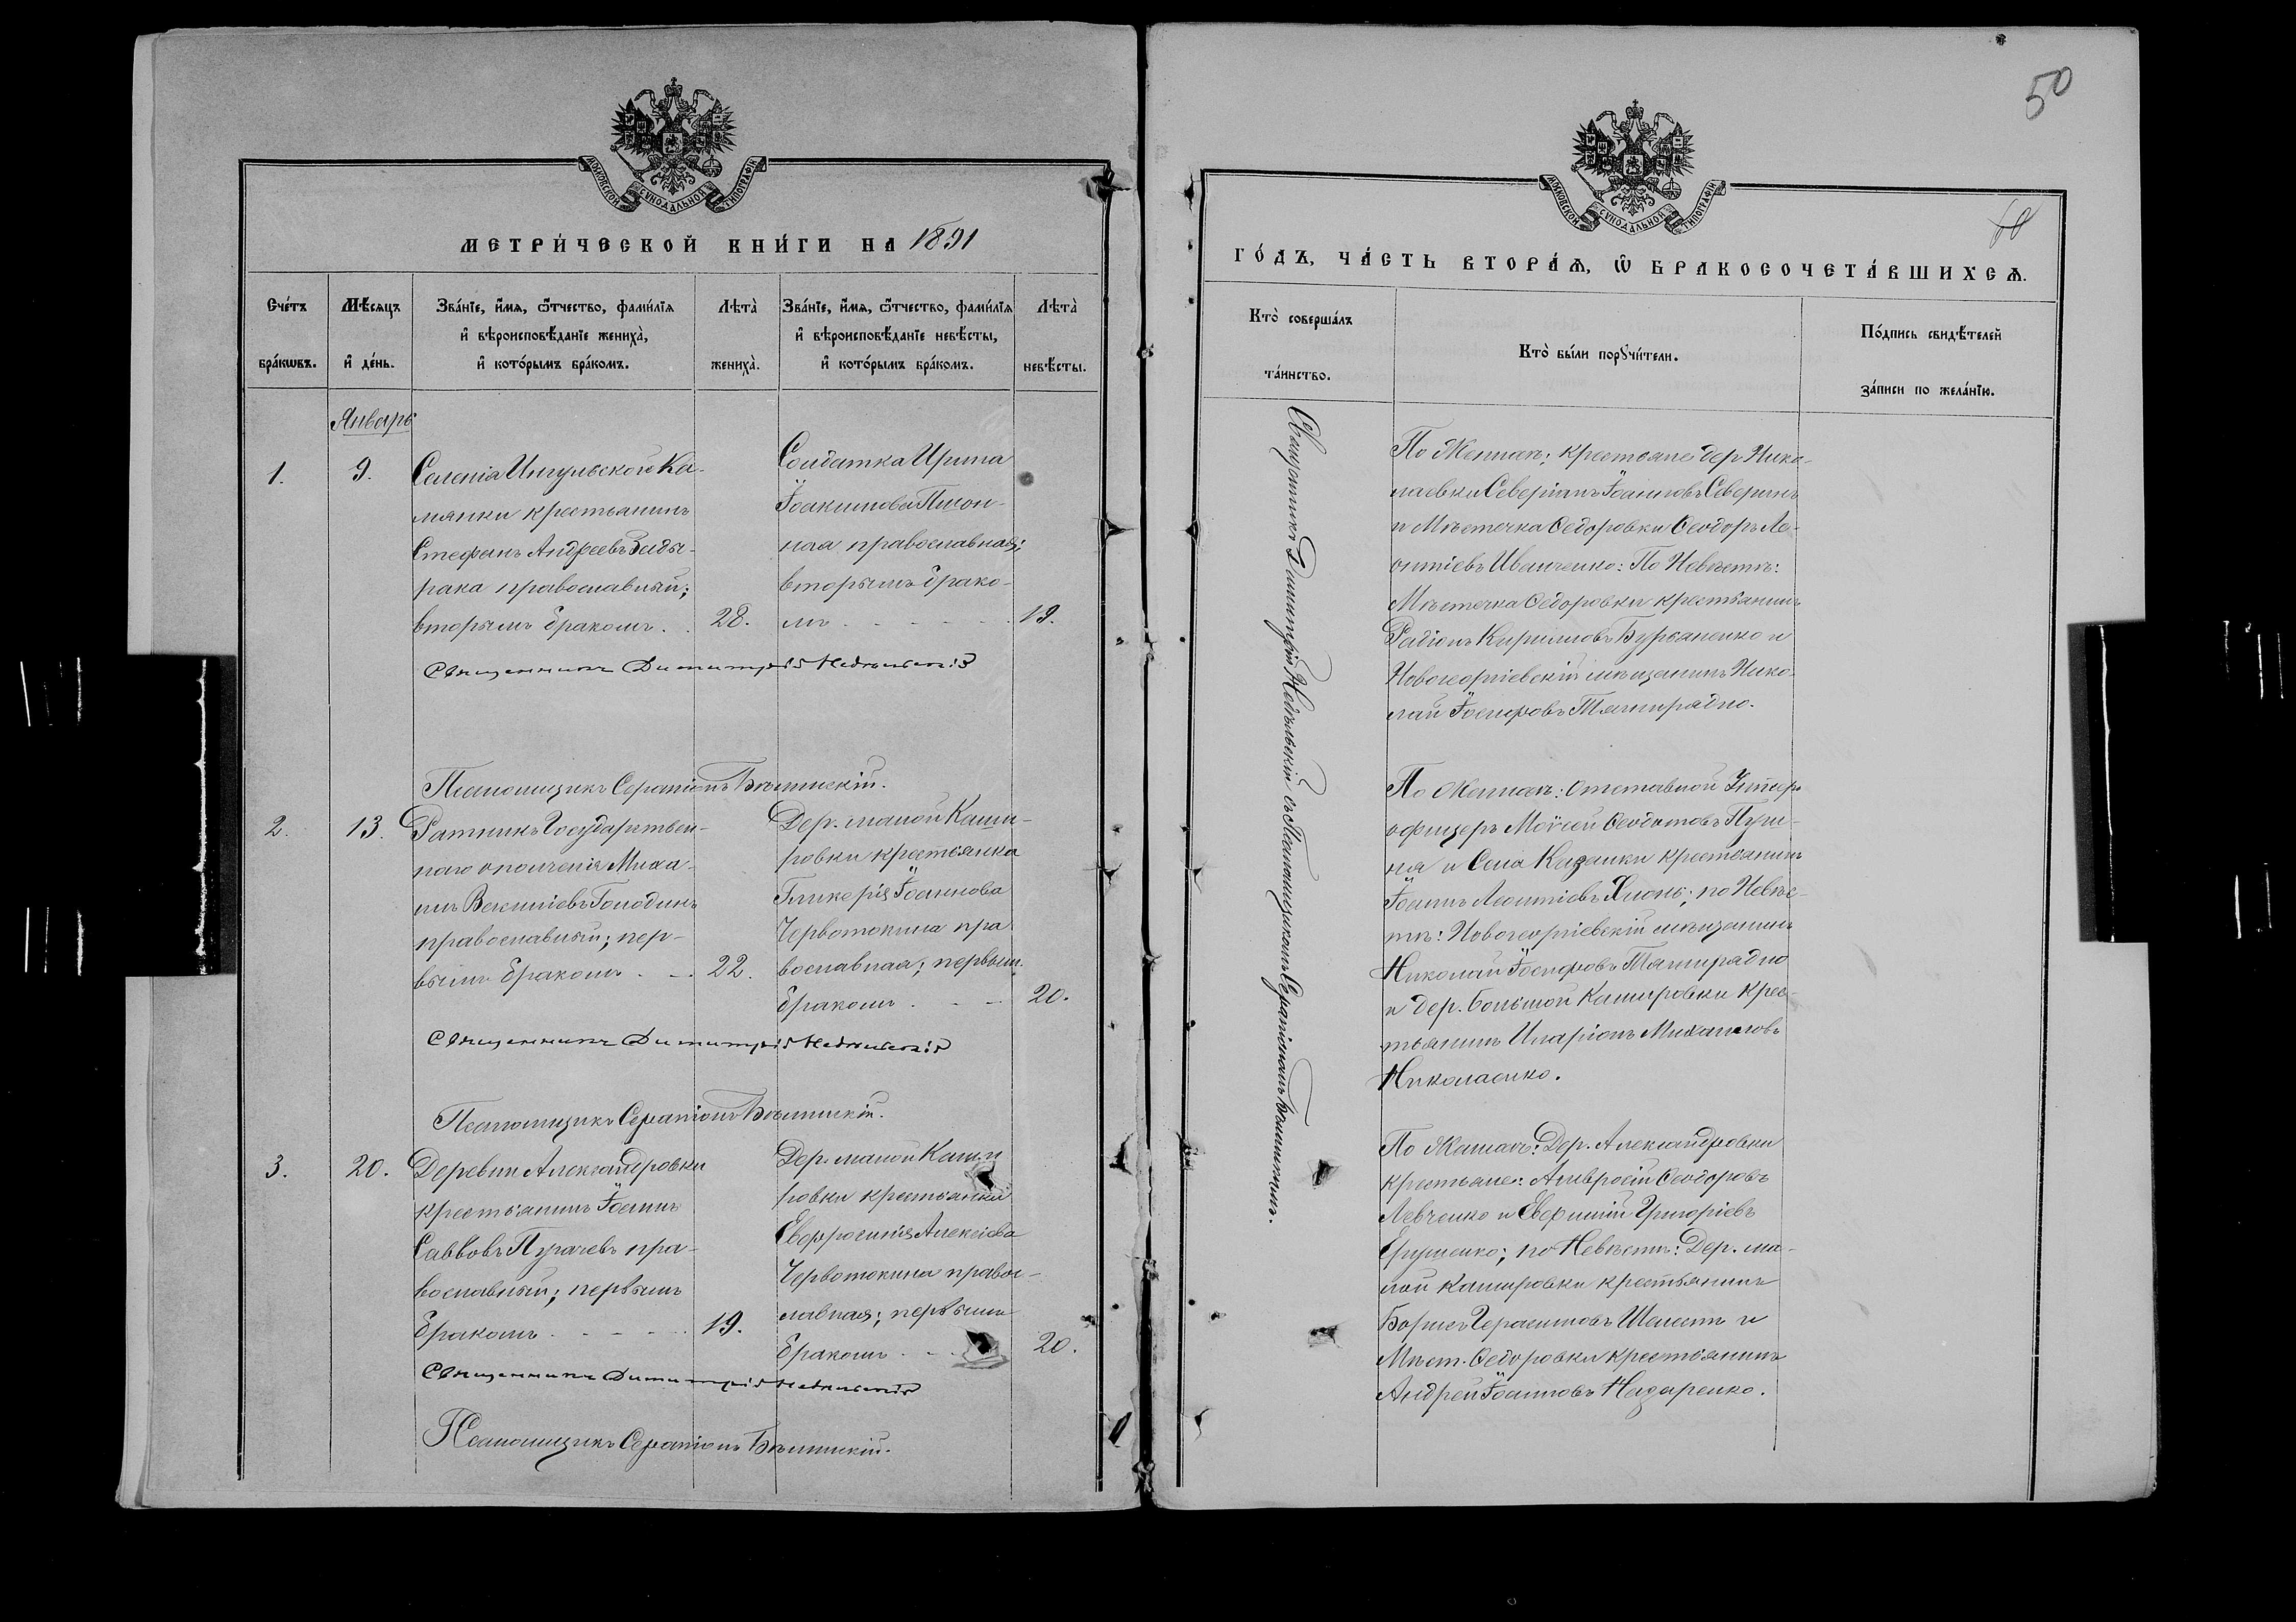 50
МОСКОВСКОЙ СѴНОДАЛЬНОЙ ТИПОГРАФІИ
МЕТРИ́ЧЕСКОЙ КНИ́ГИ НА 1891
Сче́тъ бра́кѡвъ.
Мѣ́сяцъ и҆ де́нь.
Зва́нїе, и҆́мя, ѻ҆́тчество, фами́лїя
и҆ вѣроисповѣ́данїе жениха̀,
и҆ кото́рымъ бра́комъ.
Лѣта̀ жениха̀.
Зва́нїе, и҆́мя, ѻ҆́тчество, фами́лїя
и҆ вѣроисповѣ́данїе невѣ́сты,
и҆ кото́рымъ бра́комъ.
Лѣта̀ невѣ́сты.
Январь
1.
9.
Селенія Ингульской Ка-
мянки крестьянинъ
Стефанъ Андреевъ
рака православный;
вторымъ бракомъ . .
28.
Солдатка Ирина
Іоакимова
ная православная;
вторымъ брако-
мъ
19.
Священникъ Димитрій Недѣльскій
Псаломщикъ Серапіонъ Бѣлинскій.
2.
13.
Ратникъ Государствен-
наго ополченія Миха-
илъ Голодинъ
православный; пер-
вымъ бракомъ
22.
Дер. малой Каши-
ровки крестьянка
Гликерія Іоаннова
Червоткина пра
вославная; первым.
бракомъ
20.
Священникъ Димитрій Недѣльскій
Псаломщикъ Серапіонъ Бѣлинскій.
3.
20.
Деревни Александровки
крестьянинъ Іоаннъ
Саввовъ Пугачевъ пра-
вославный; первымъ
бракомъ
19.
Дер. малой Каши
ровки крестьянка
Евфросинія Алексіева
Червоткина правос-
лавная; первымъ
бракомъ
20.
Священникъ Димитрій Недѣльскій
Псаломщикъ Серапіонъ Бѣлинскій.
МОСКОВСКОЙ СѴНОДАЛЬНОЙ ТИПОГРАФІИ
ГО́ДЪ, ЧА́СТЬ ВТОРА́Ѧ, Ѽ БРАКОСОЧЕТА́ВШИХСѦ.
Кто̀ соверша́лъ та́инство.
Кто̀ бы́ли порꙋчи́тели.
По́дпись свидѣ́телей за́писи по жела́нїю.
Священникъ Димитрій Недѣльскій съ Псаломщикомъ Серапіономъ Бѣлинскимъ.
По Женихѣ: крестьяне дер. Нико-
лаевки Северіанъ Іоанновъ Северинъ
и Мѣстечка Ѳедоровки Ѳеодоръ Ле-
онтіевъ Иванченко: По Невѣстѣ:
Мѣстечка Ѳедоровки крестьянинъ
Радіонъ Кирилловъ Бурьяненко и
Новогеоргіевскій мѣщанинъ Нико-
лай Іосифовъ
По Женихѣ: Отставной Унтеръ
офицеръ Моѵсей Ѳеодотовъ
и Села Казанки крестьянинъ
Іоаннъ Леонтіевъ по Невѣс-
тѣ: Новогеоргіевскій мѣщанинъ
Николай Іосифовъ
и дер. Большой Кашировки крес-
тьянинъ Иларіонъ Михаиловъ
Николаенко.
По Женихѣ: Дер. Александровки
крестьяне: Амвросій Ѳеодоровъ
Левченко и Евфимій Григоріевъ
по Невѣстѣ: Дер. ма-
лой Кашировки крестьянинъ
Борисъ Герасимовъ Шелестъ и
Мѣст. Ѳедоровки крестьянинъ
Андрей Іоанновъ Назаренко.